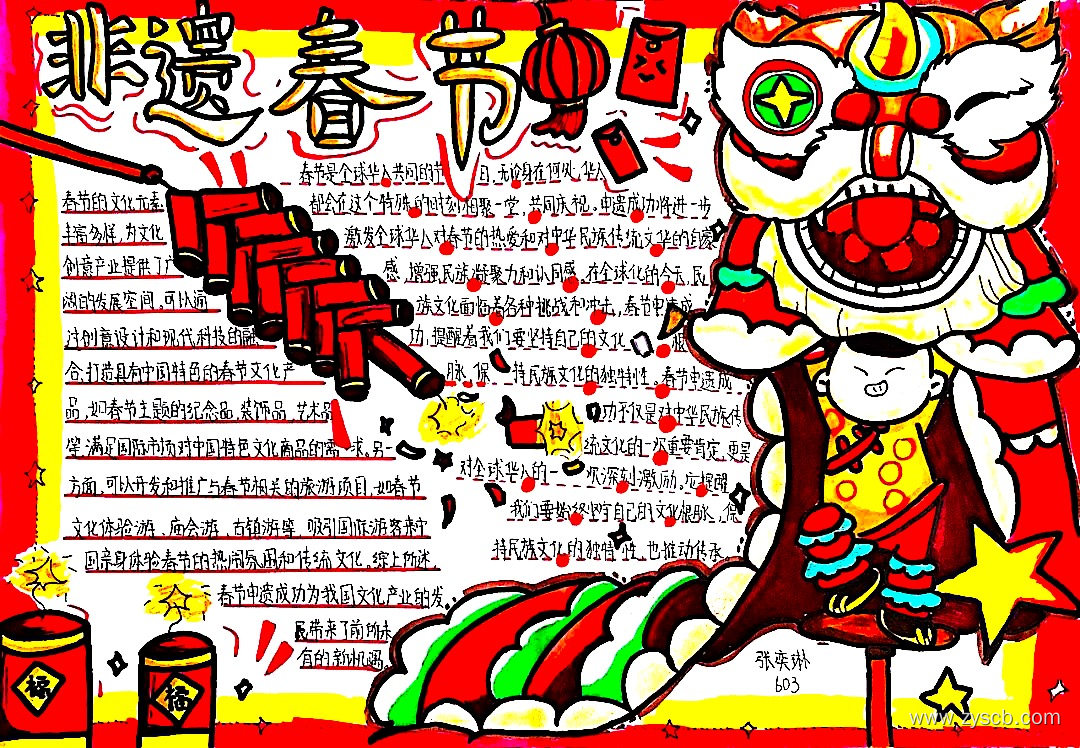 非遗春节
春节的文化元素
丰富多样,为文化
创意产业提供了广
阔的发展空间,可以通
过创意设计和现代科技的融
合,打造具有中国特色的春节文化产
品,如春节主题的纪念品、装饰品、艺术品
等,满足国际市场对中国特色文化商品的需求,另一
方面,可以开发和推广与春节相关的旅游项目,如春节
文化体验游、庙会游、古镇游等,吸引国际游客来中
国亲身体验春节的热闹氛围和传统文化。综上所述
春节申遗成功为我国文化产业的发
展带来了前所未
有的新机遇。
春节是全球华人共同的节日,无论身在何处,华人
都会在这个特殊的时刻相聚一堂,共同庆祝。申遗成功将进一步
激发全球华人对春节的热爱和对中华民族传统文华的自豪
感,增强民族凝聚力和认同感。在全球化的今天,民
族文化面临着各种挑战和冲击,春节申遗成
功,提醒着我们要坚持自己的文化根
脉,保持民族文化的独特性。春节申遗成
功不仅是对中华民族传
统文化的一次重要肯定,更是
对全球华人的一次深刻激励。应提醒
我们要始终坚守自己的文化根脉,保
持民族文化的独特性,也推动传承
张奕琳
603
福
福
www.zyscb.com